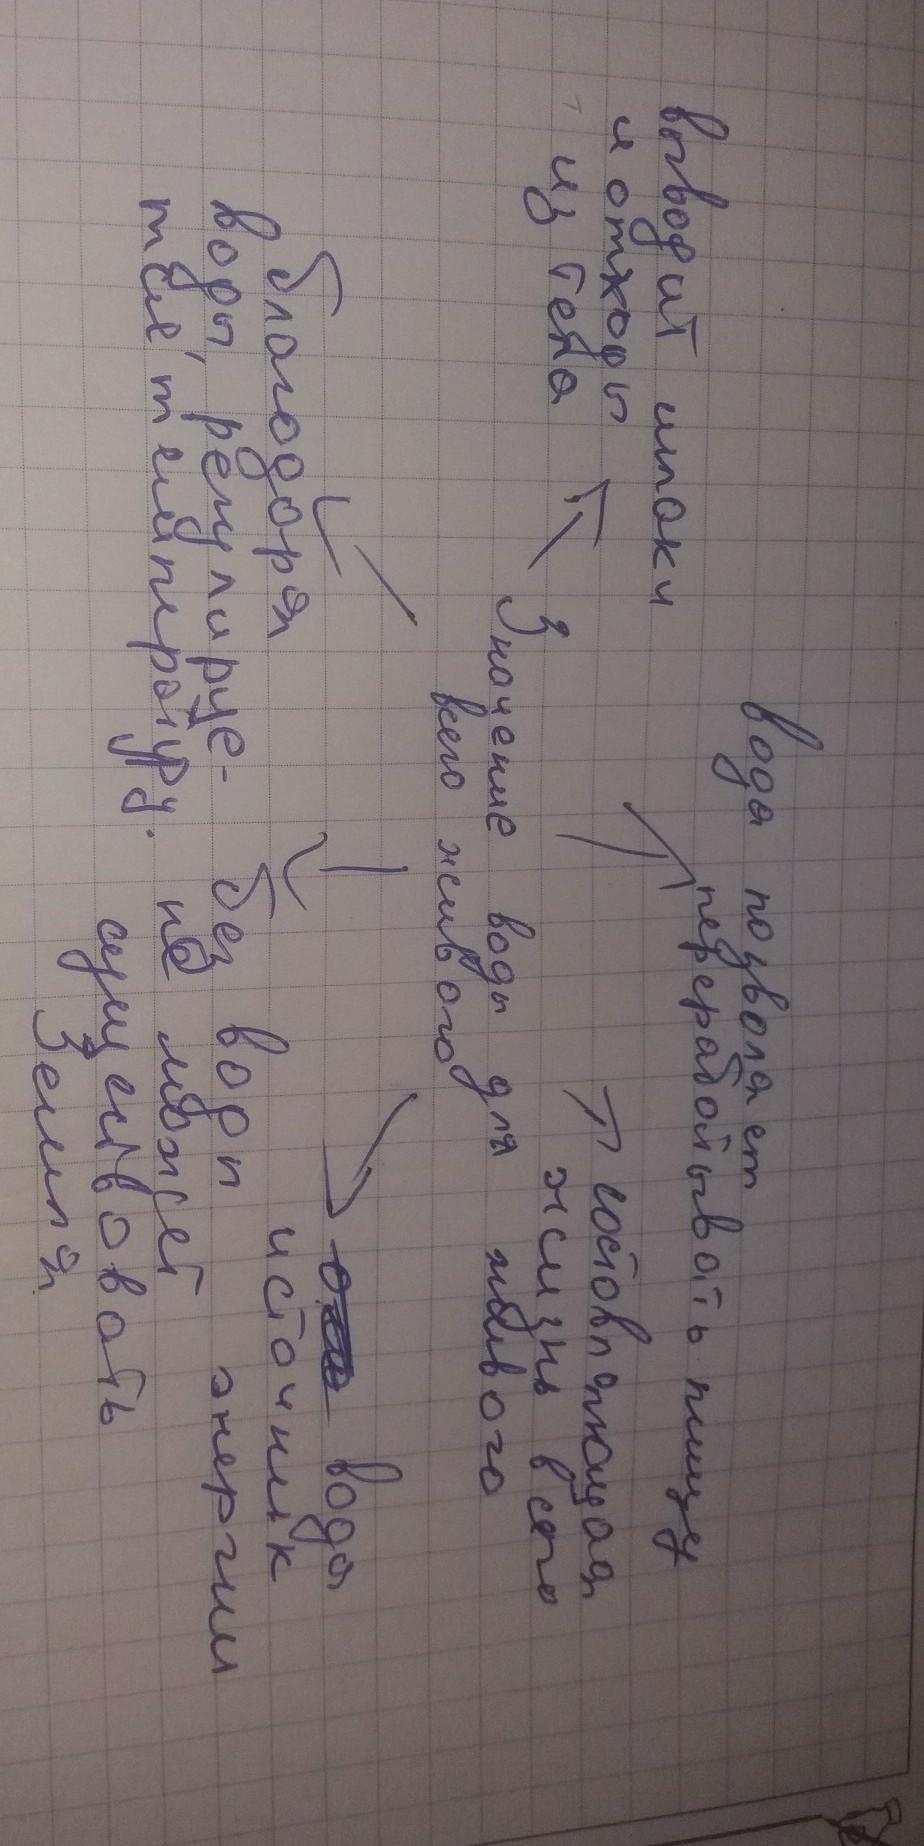 выводит шлаки
и отходы
из тела
вода позволяет
перерабатывать пищу
составляющая
жизнь всего
живого
Значение воды для
всего живого
благодоря
воды, регулируе-
тся температуру.
без воды
не может
существовать
Земля
вода
источник
энергии